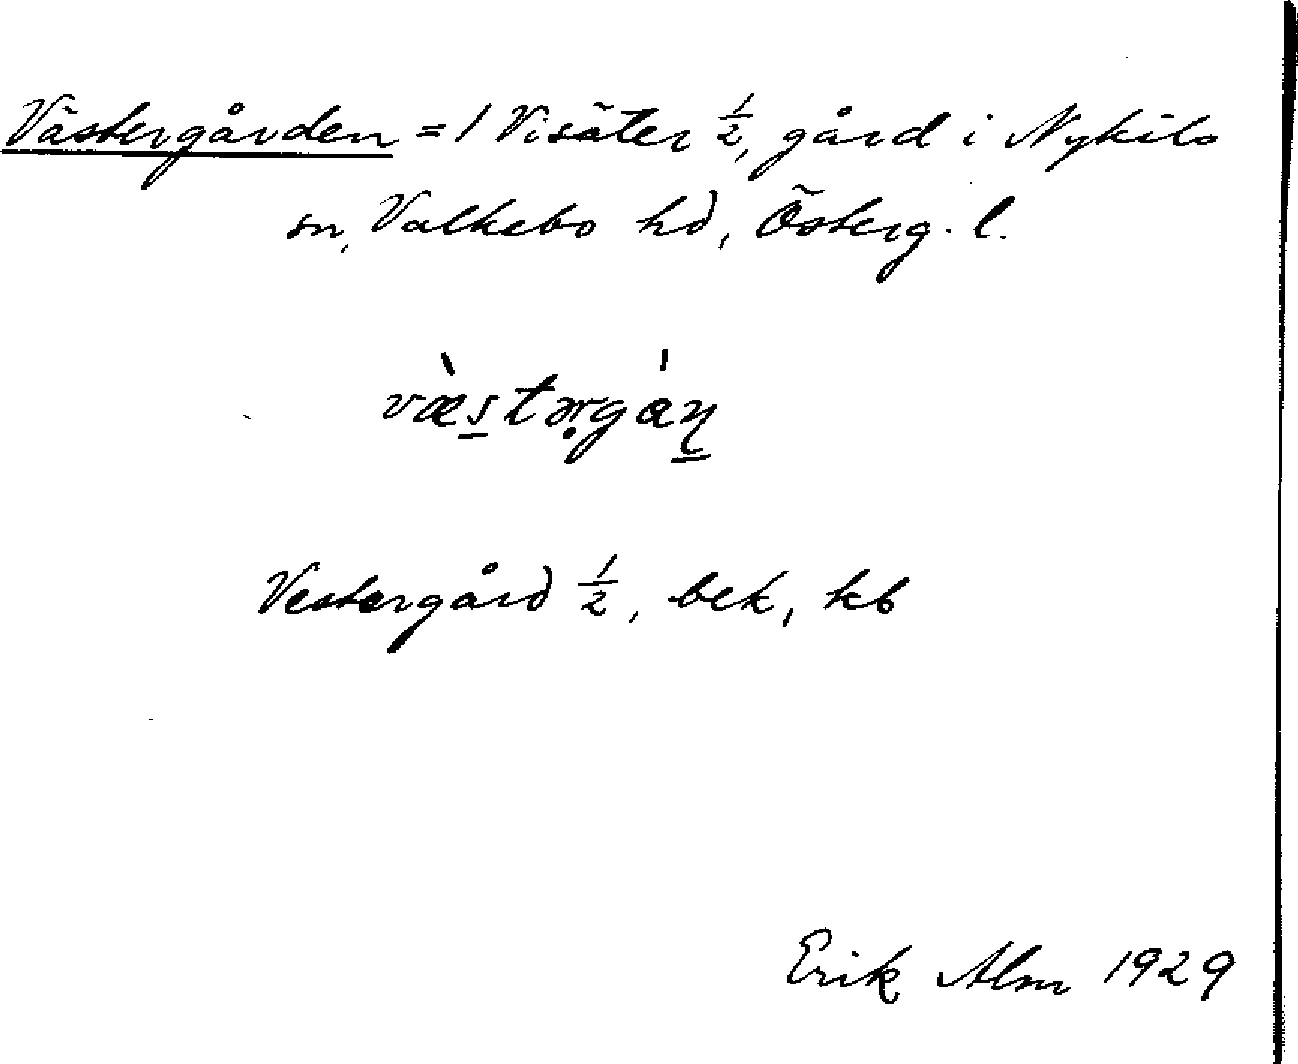 Västergården = 1 Visäter ½, gård i Nykils
sn, Valkebo hd, Österg. l.
væ̀s̠təṛgȧṉ
Vestergård ½, bek, kb
Erik Alm 1929